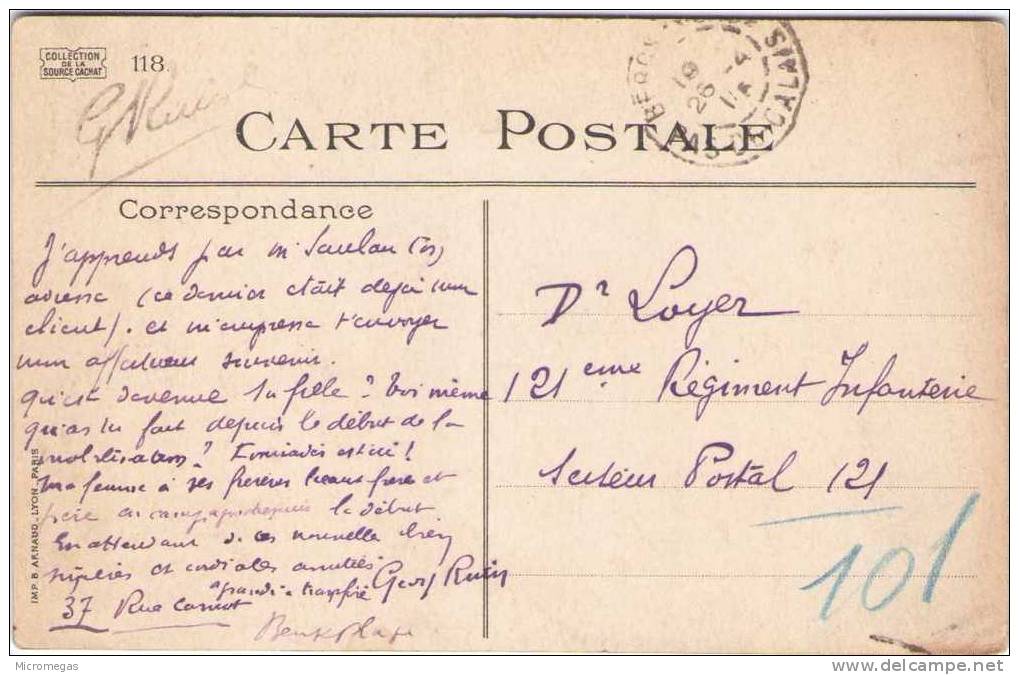 COLLECTION
DE LA
SOURCE CACHAT
118.
CARTE POSTALE
BERCK PAS DE CALAIS
19
26 -4
15
Correspondance
J'apprends par m. Saulau (ta)
adresse (ce dernier était déjà mon
client). et m'empresse t'envoyer
mon affectueux souvenir.
qu'est devenue ta fille? toi même
qu'as tu fait depuis le début de la
mobilisation?
ma femme a ses frères beaux frères et
frère en campagne depuis le début
En attendant de tes nouvelles bien
et cordiales amitiés
Georg
37 Rue Carnot
Berck plage
Dr Loyer
121eme Régiment Infanterie
Secteur Postal 121
101
IMP. B. ARNAUD. LYON. PARIS
Micromegas
delcampe.net